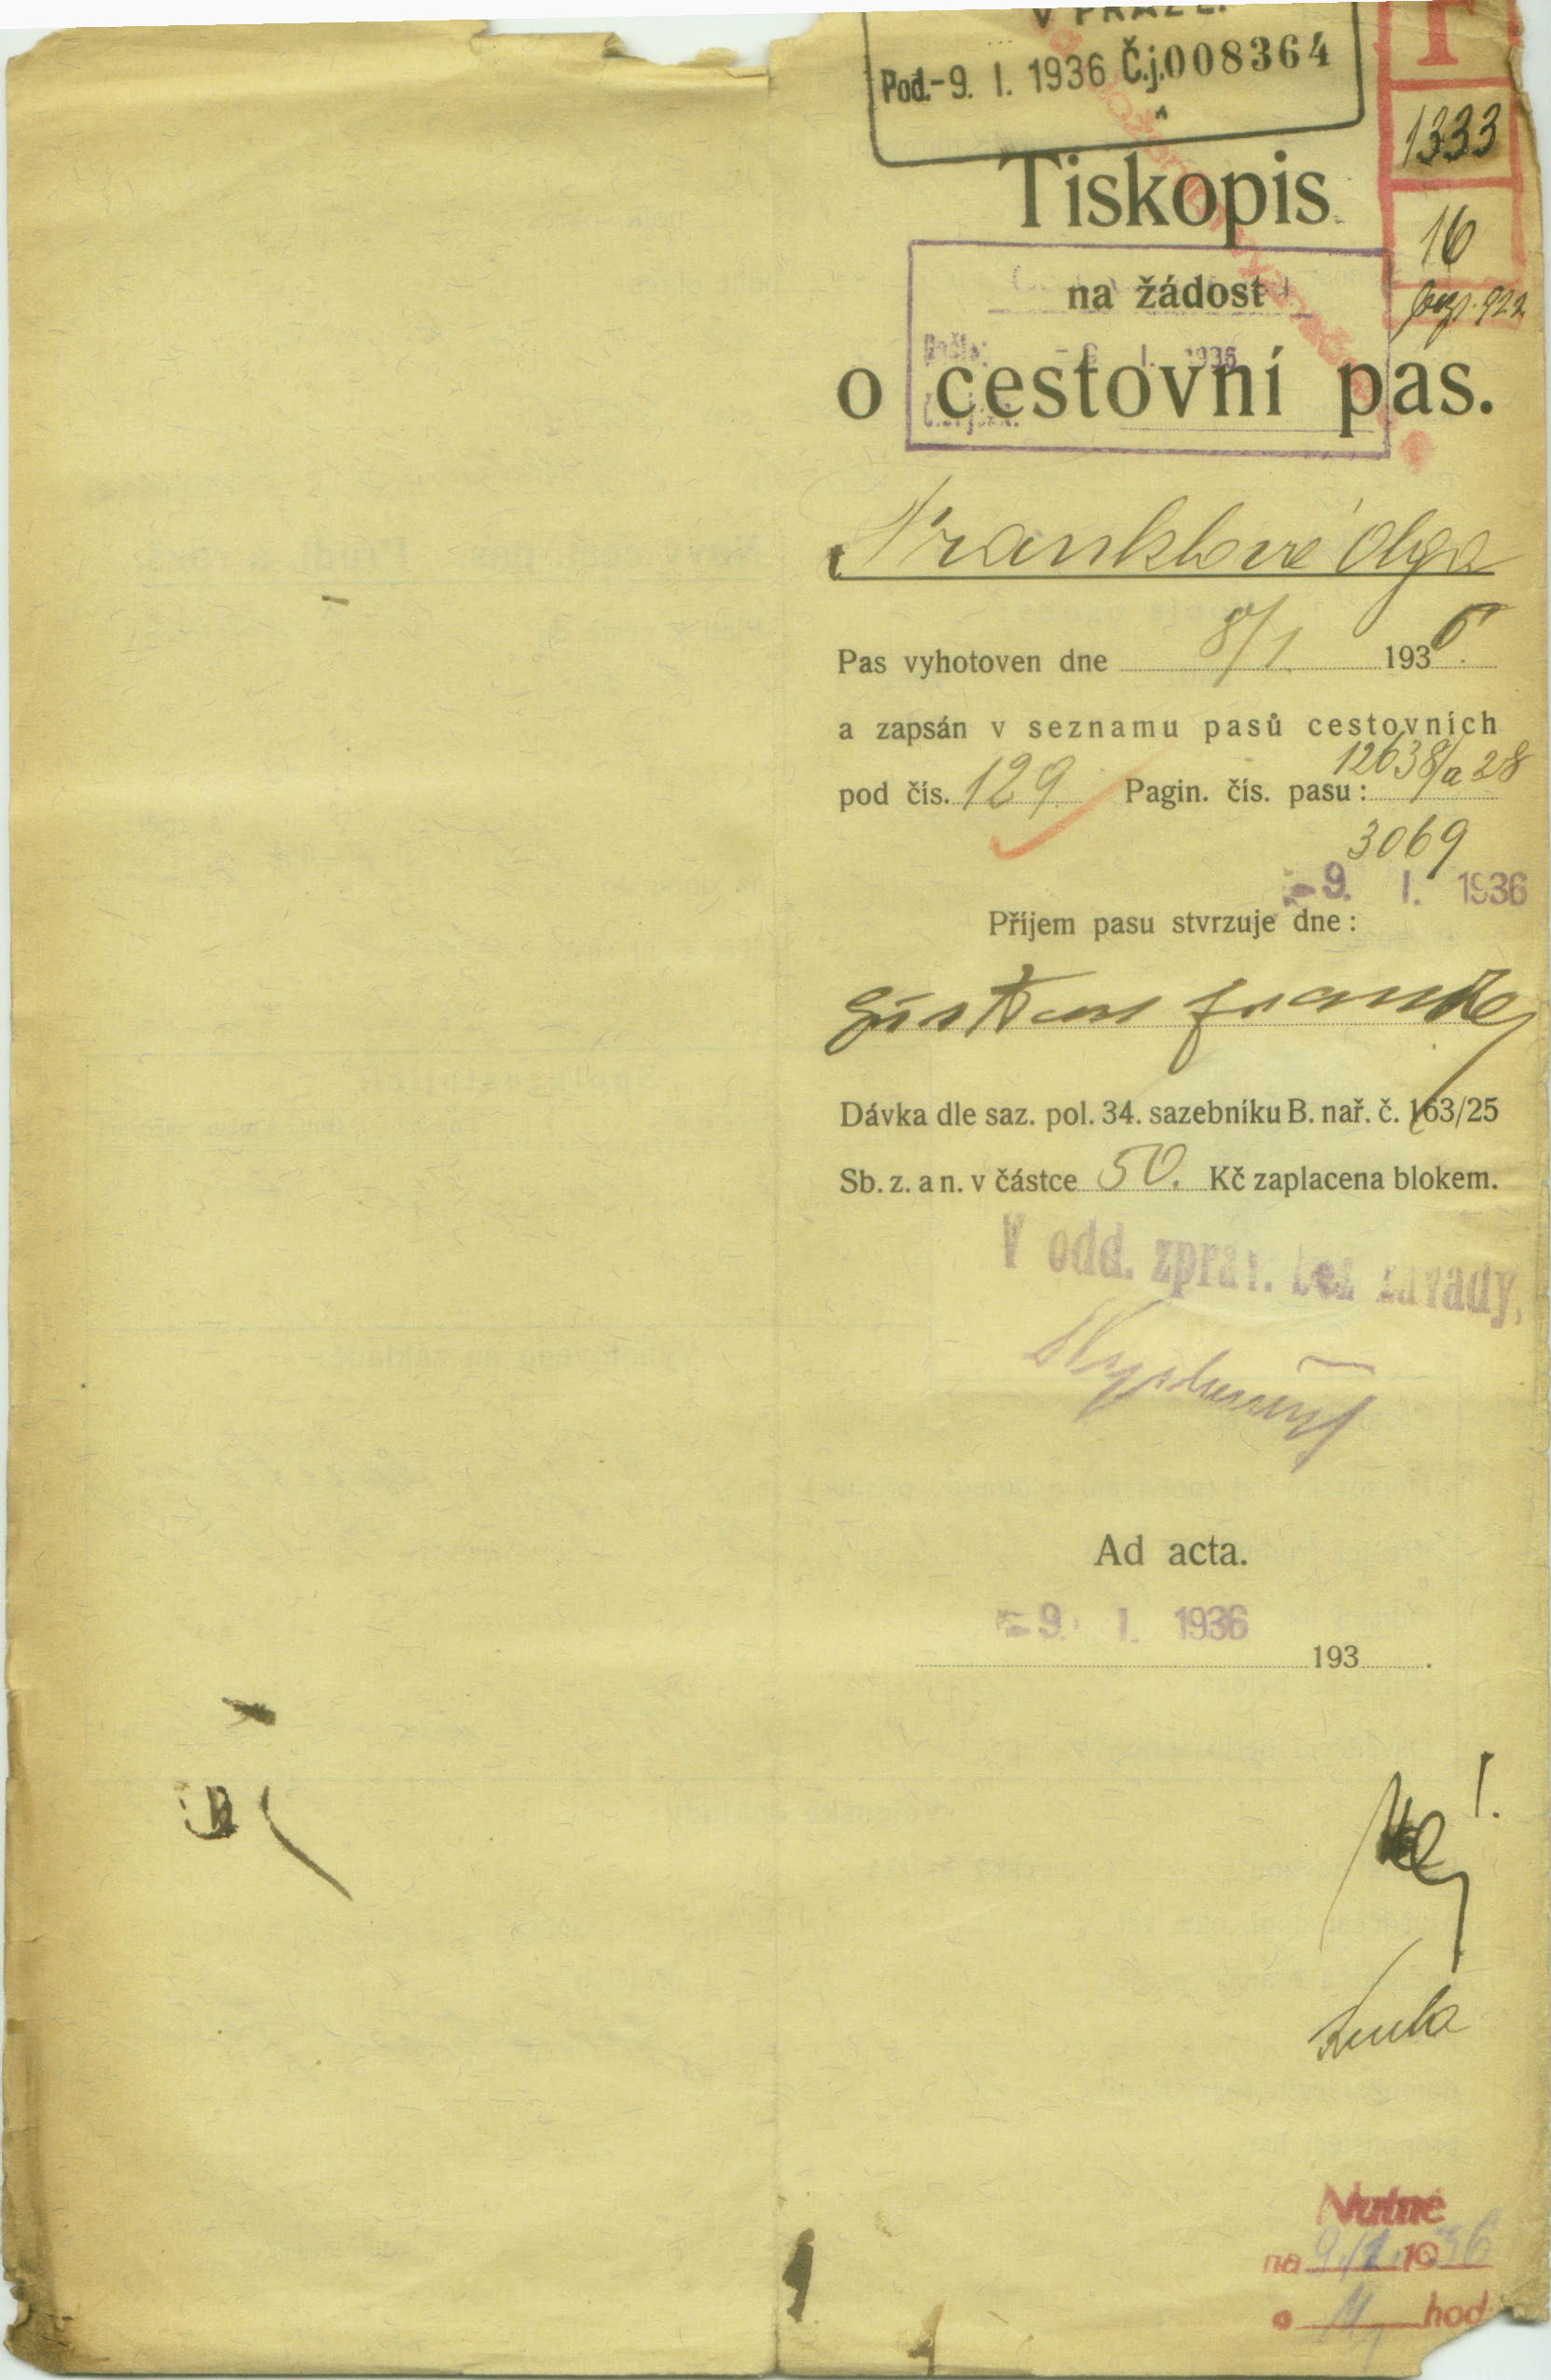 V PRAZE.
Pod. -9. I. 1936 Č.j. 008364
T
1333
16
Tiskopis
na žádost
Došlo: -9. I. 1936
o cestovní pas.
Franklová Olga
Pas vyhotoven dne 8/1. 1936.
a zapsán v seznamu pasů cestovních
pod čís. 129 Pagin. čís. pasu: 12638/a 28
3069
-9. I. 1936
Příjem pasu stvrzuje dne:
Gustav
Dávka dle saz. pol. 34. sazebníku B. nař. č. 163/25
Sb. z. a n. v částce 50. Kč zaplacena blokem.
V odd. zpráv. bez závady,
Ad acta.
-9. I. 1936
193 .
Nutné
na 9./1. 1936
o 11 hod